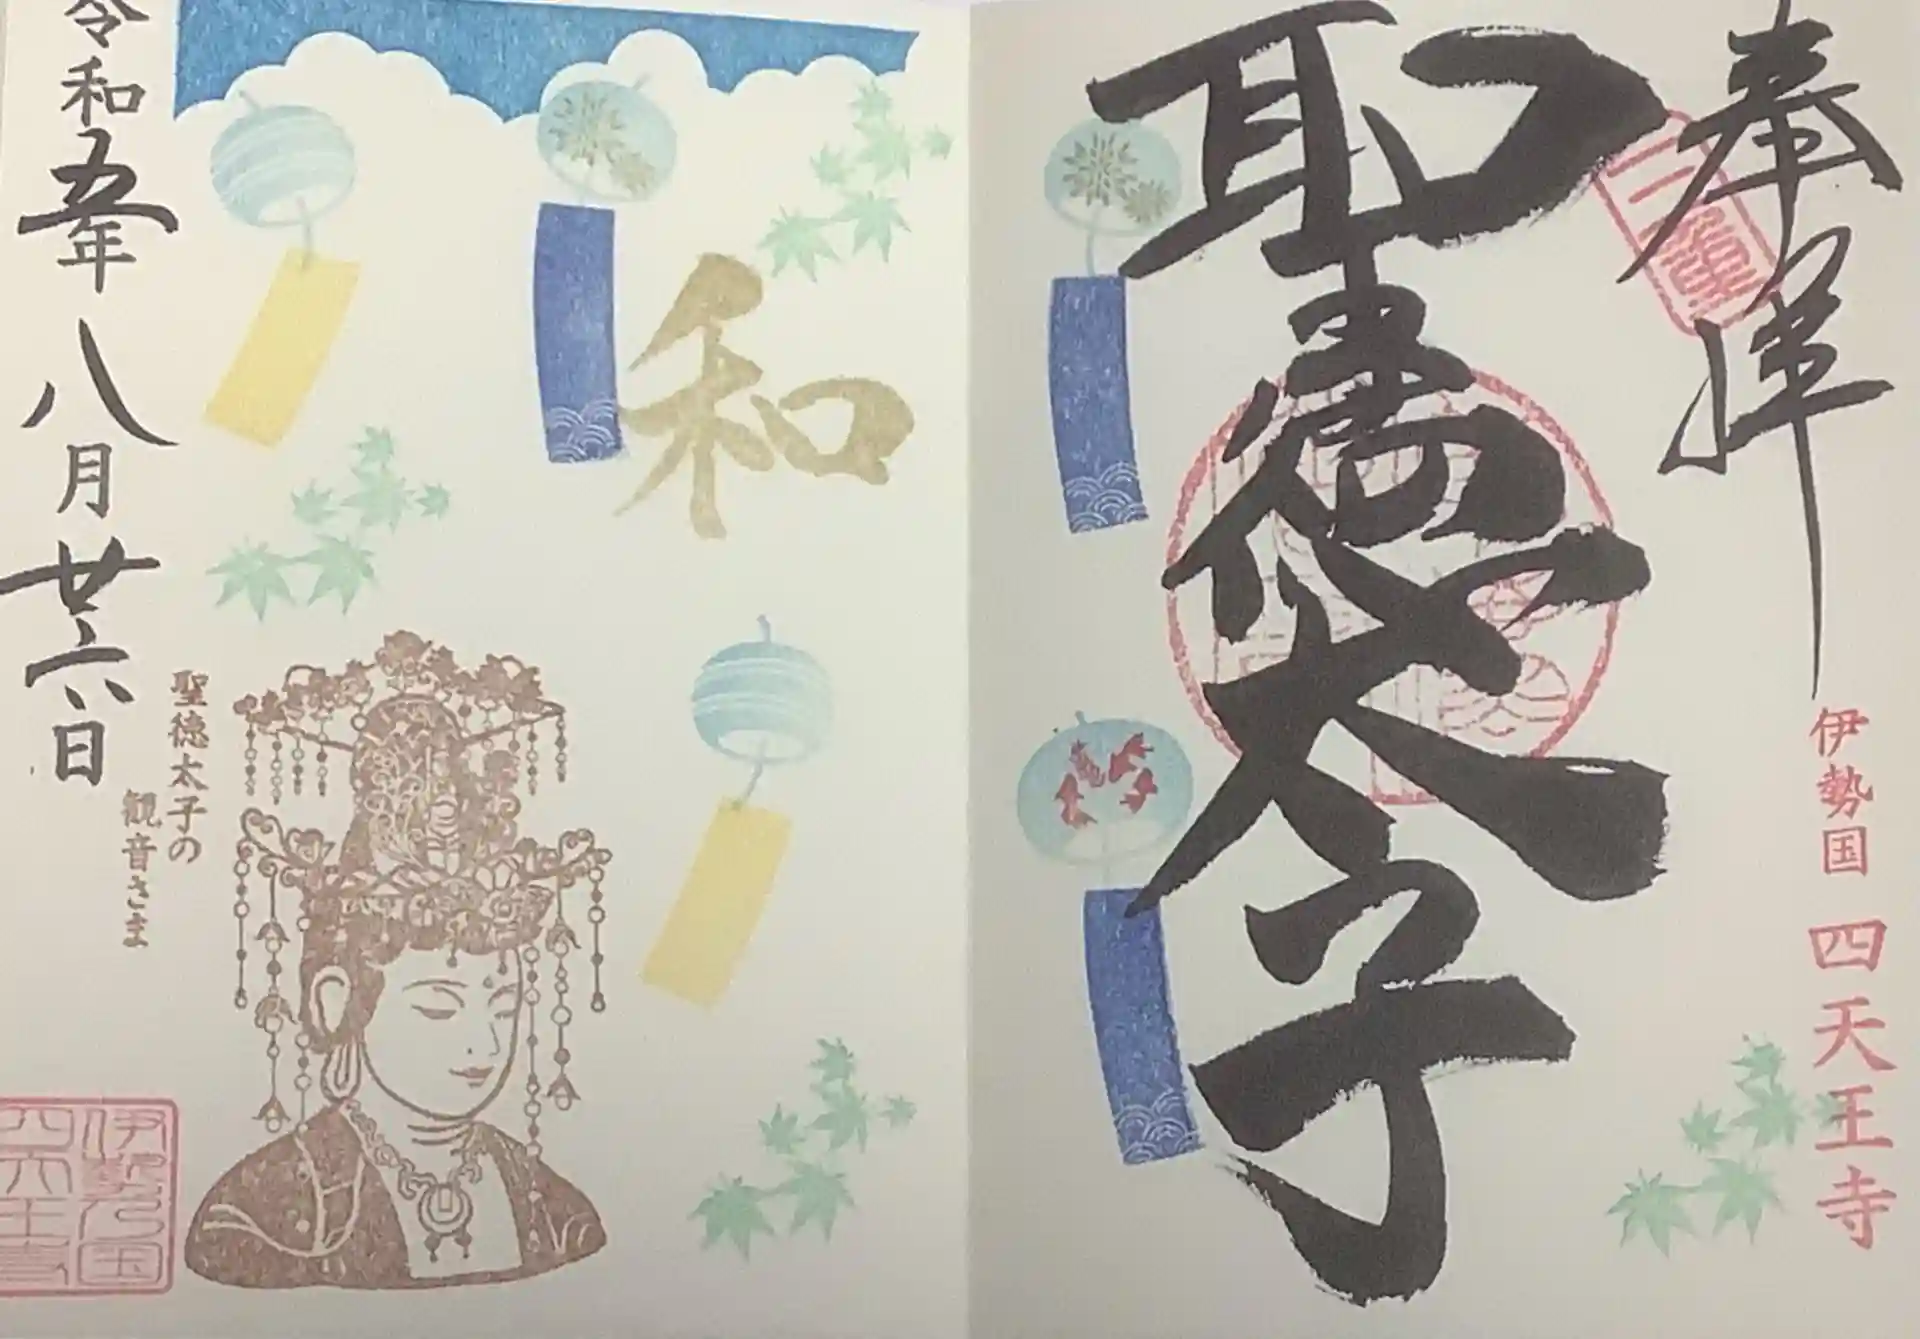 奉拝
聖徳太子
伊勢国 四天王寺
和
聖徳太子の
観音さま
令和五年八月廿六日
伊勢乃国
四天王寺